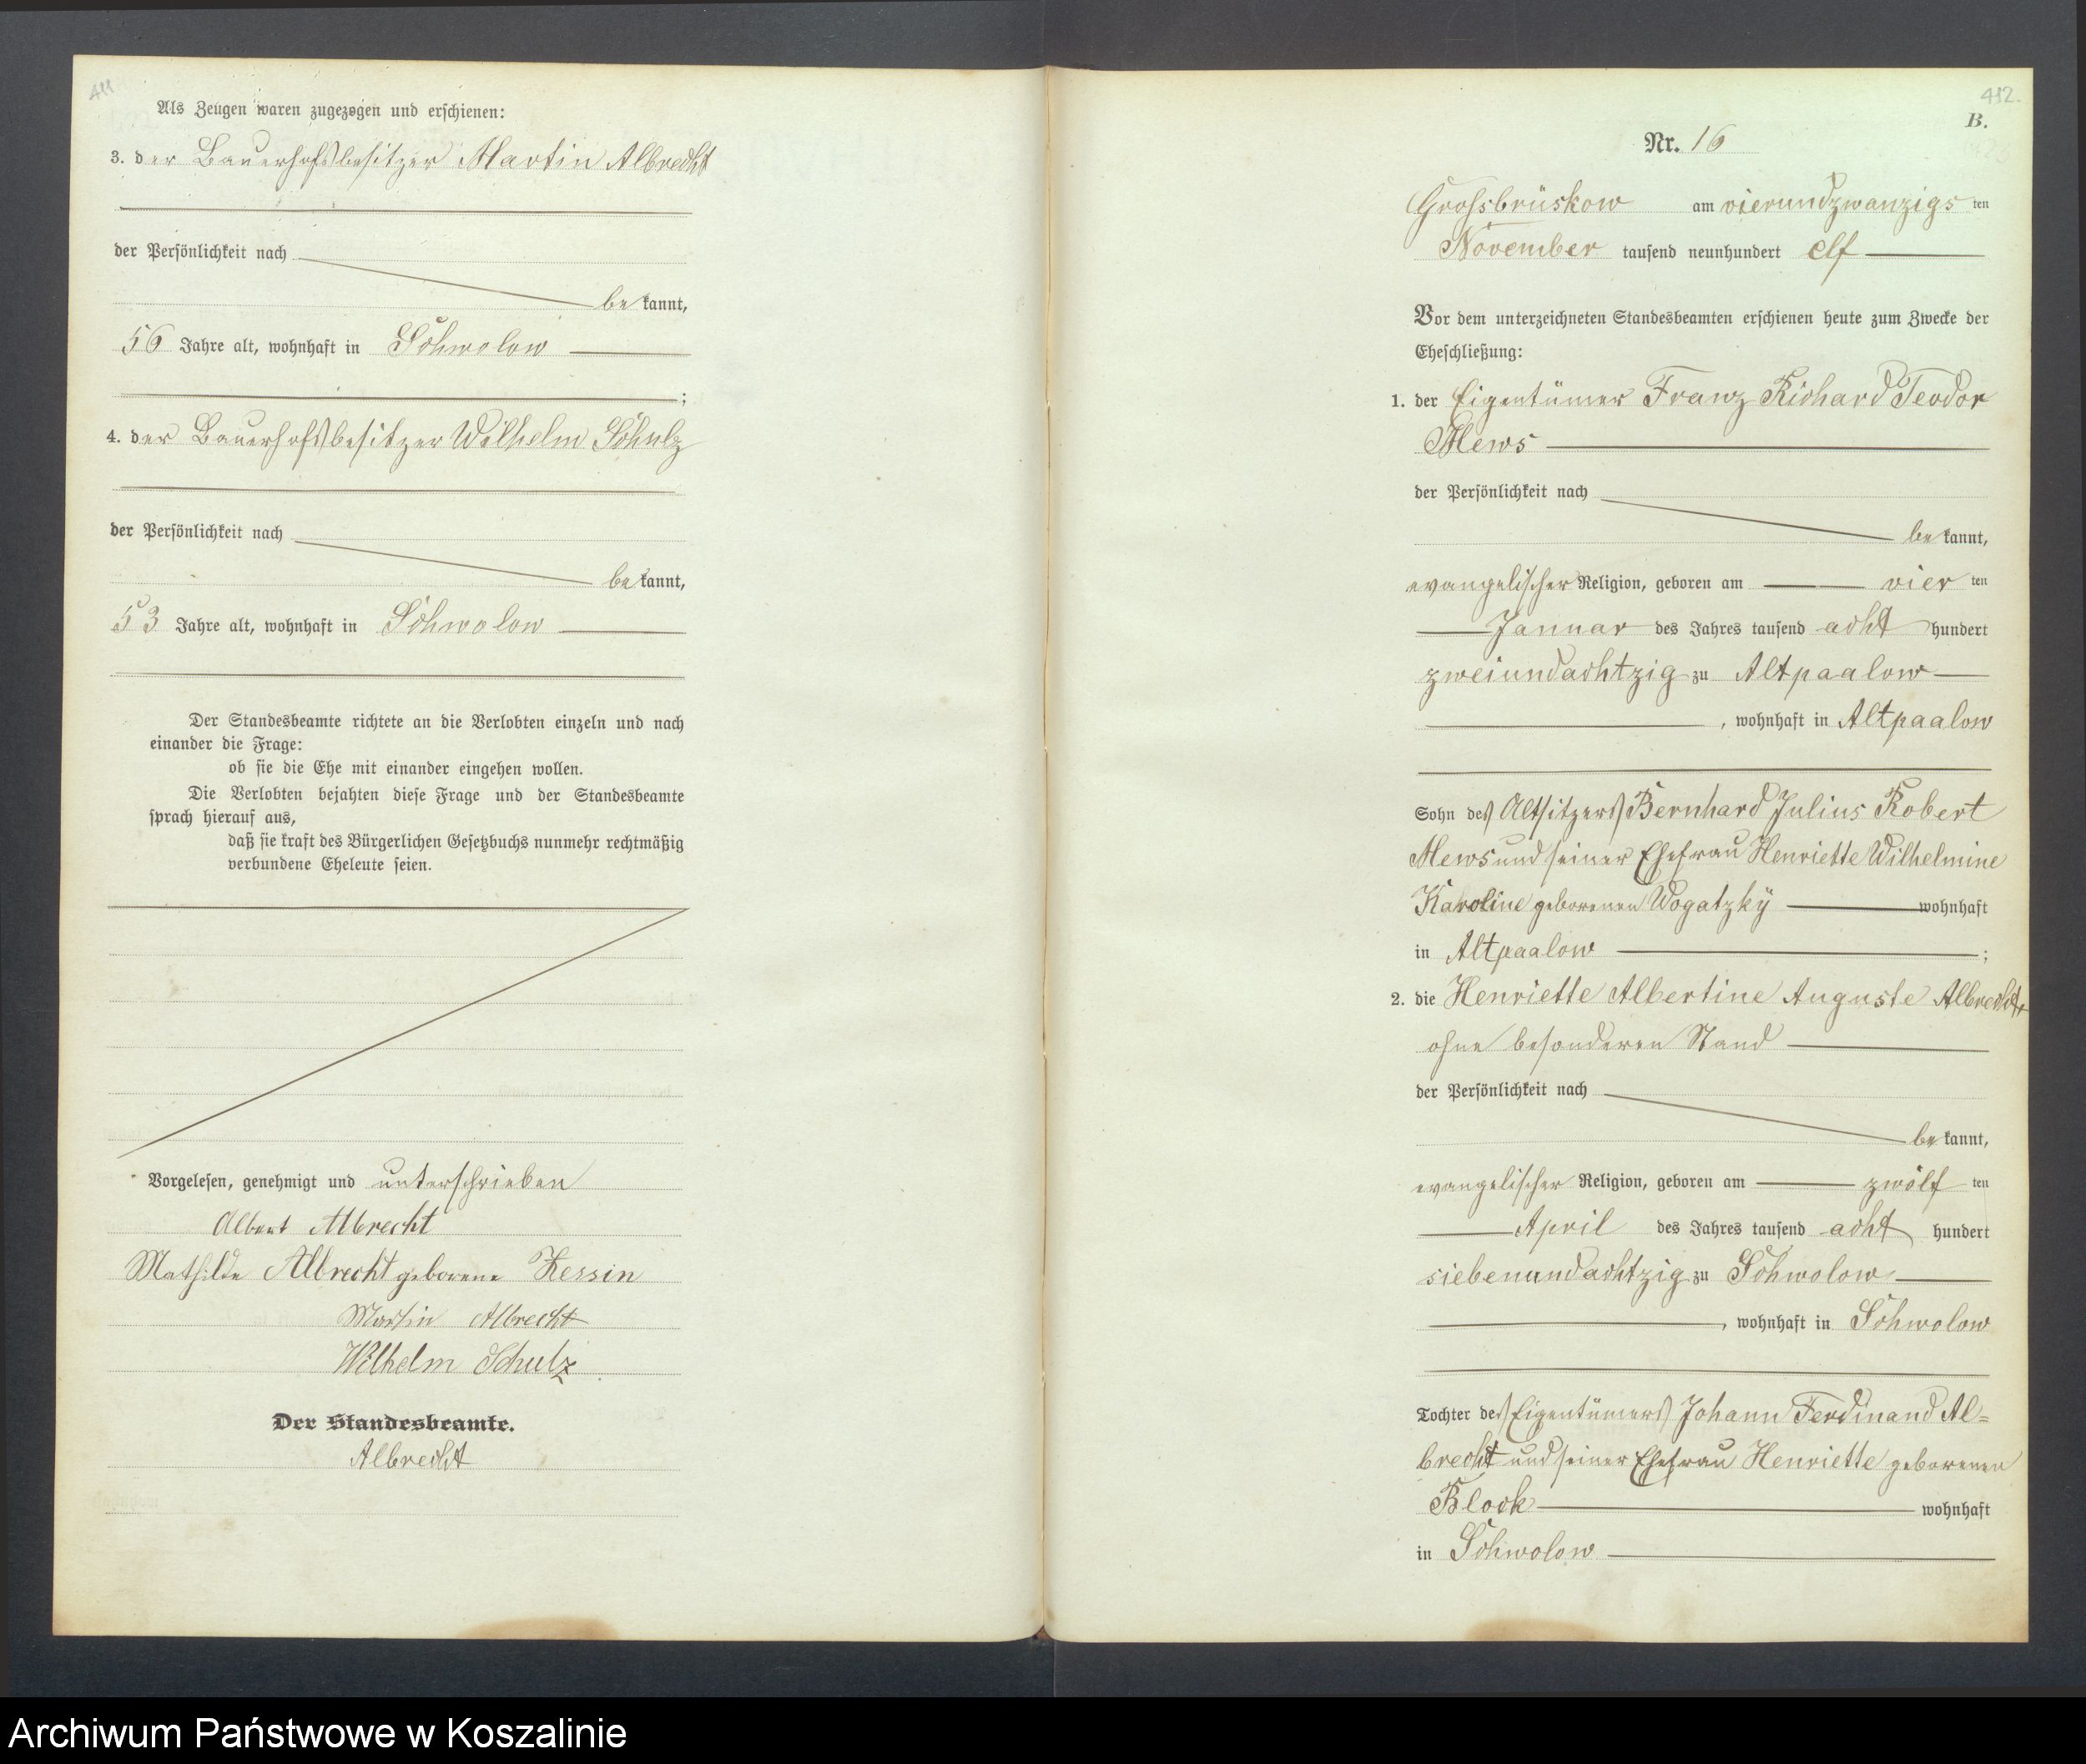 411
Als Zeugen waren zugezogen und erschienen:
3. der Bauerhofsbesitzer Martin Albrecht
der Persönlichkeit nach
be kannt,
56 Jahre alt, wohnhaft in Schwolow
;
4. der Bauerhofsbesitzer Wilhelm Schulz
der Persönlichkeit nach
be kannt,
53 Jahre alt, wohnhaft in Schwolow
Der Standesbeamte richtete an die Verlobten einzeln und nach
einander die Frage:
ob sie die Ehe mit einander eingehen wollen.
Die Verlobten bejahten diese Frage und der Standesbeamte
sprach hierauf aus,
daß sie kraft des Bürgerlichen Gesetzbuchs nunmehr rechtmäßig
verbundene Eheleute seien.
Vorgelesen, genehmigt und unterschrieben
Albert Albrecht
Mathilde Albrecht geborene Kessin
Martin Albrecht
Wilhelm Schulz
Der Standesbeamte.
Albrecht
412.
B.
Nr. 16
Grossbrüskow am vierundzwanzigs ten
November tausend neunhundert elf
Vor dem unterzeichneten Standesbeamten erschienen heute zum Zwecke der
Eheschließung:
1. der Eigentümer Franz Richard Teodor
Mews
der Persönlichkeit nach
be kannt,
evangelischer Religion, geboren am vier ten
Januar des Jahres tausend acht hundert
zweiundachtzig zu Altpaalow
, wohnhaft in Altpaalow
Sohn des Altsitzers Bernhard Julius Robert
Mews und seiner Ehefrau Henriette Wilhelmine
Karoline geborenen Wogatzky wohnhaft
in Altpaalow ;
2. die Henriette Albertine Auguste Albrecht,
ohne besonderen Stand
der Persönlichkeit nach
be kannt,
evangelischer Religion, geboren am zwölf ten
April des Jahres tausend acht hundert
siebenundachtzig zu Schwolow
, wohnhaft in Schwolow
Tochter des Eigentümers Johann Ferdinand Al=
brecht und seiner Ehefrau Henriette geborenen
Block wohnhaft
in Schwolow
Archiwum Państwowe w Koszalinie